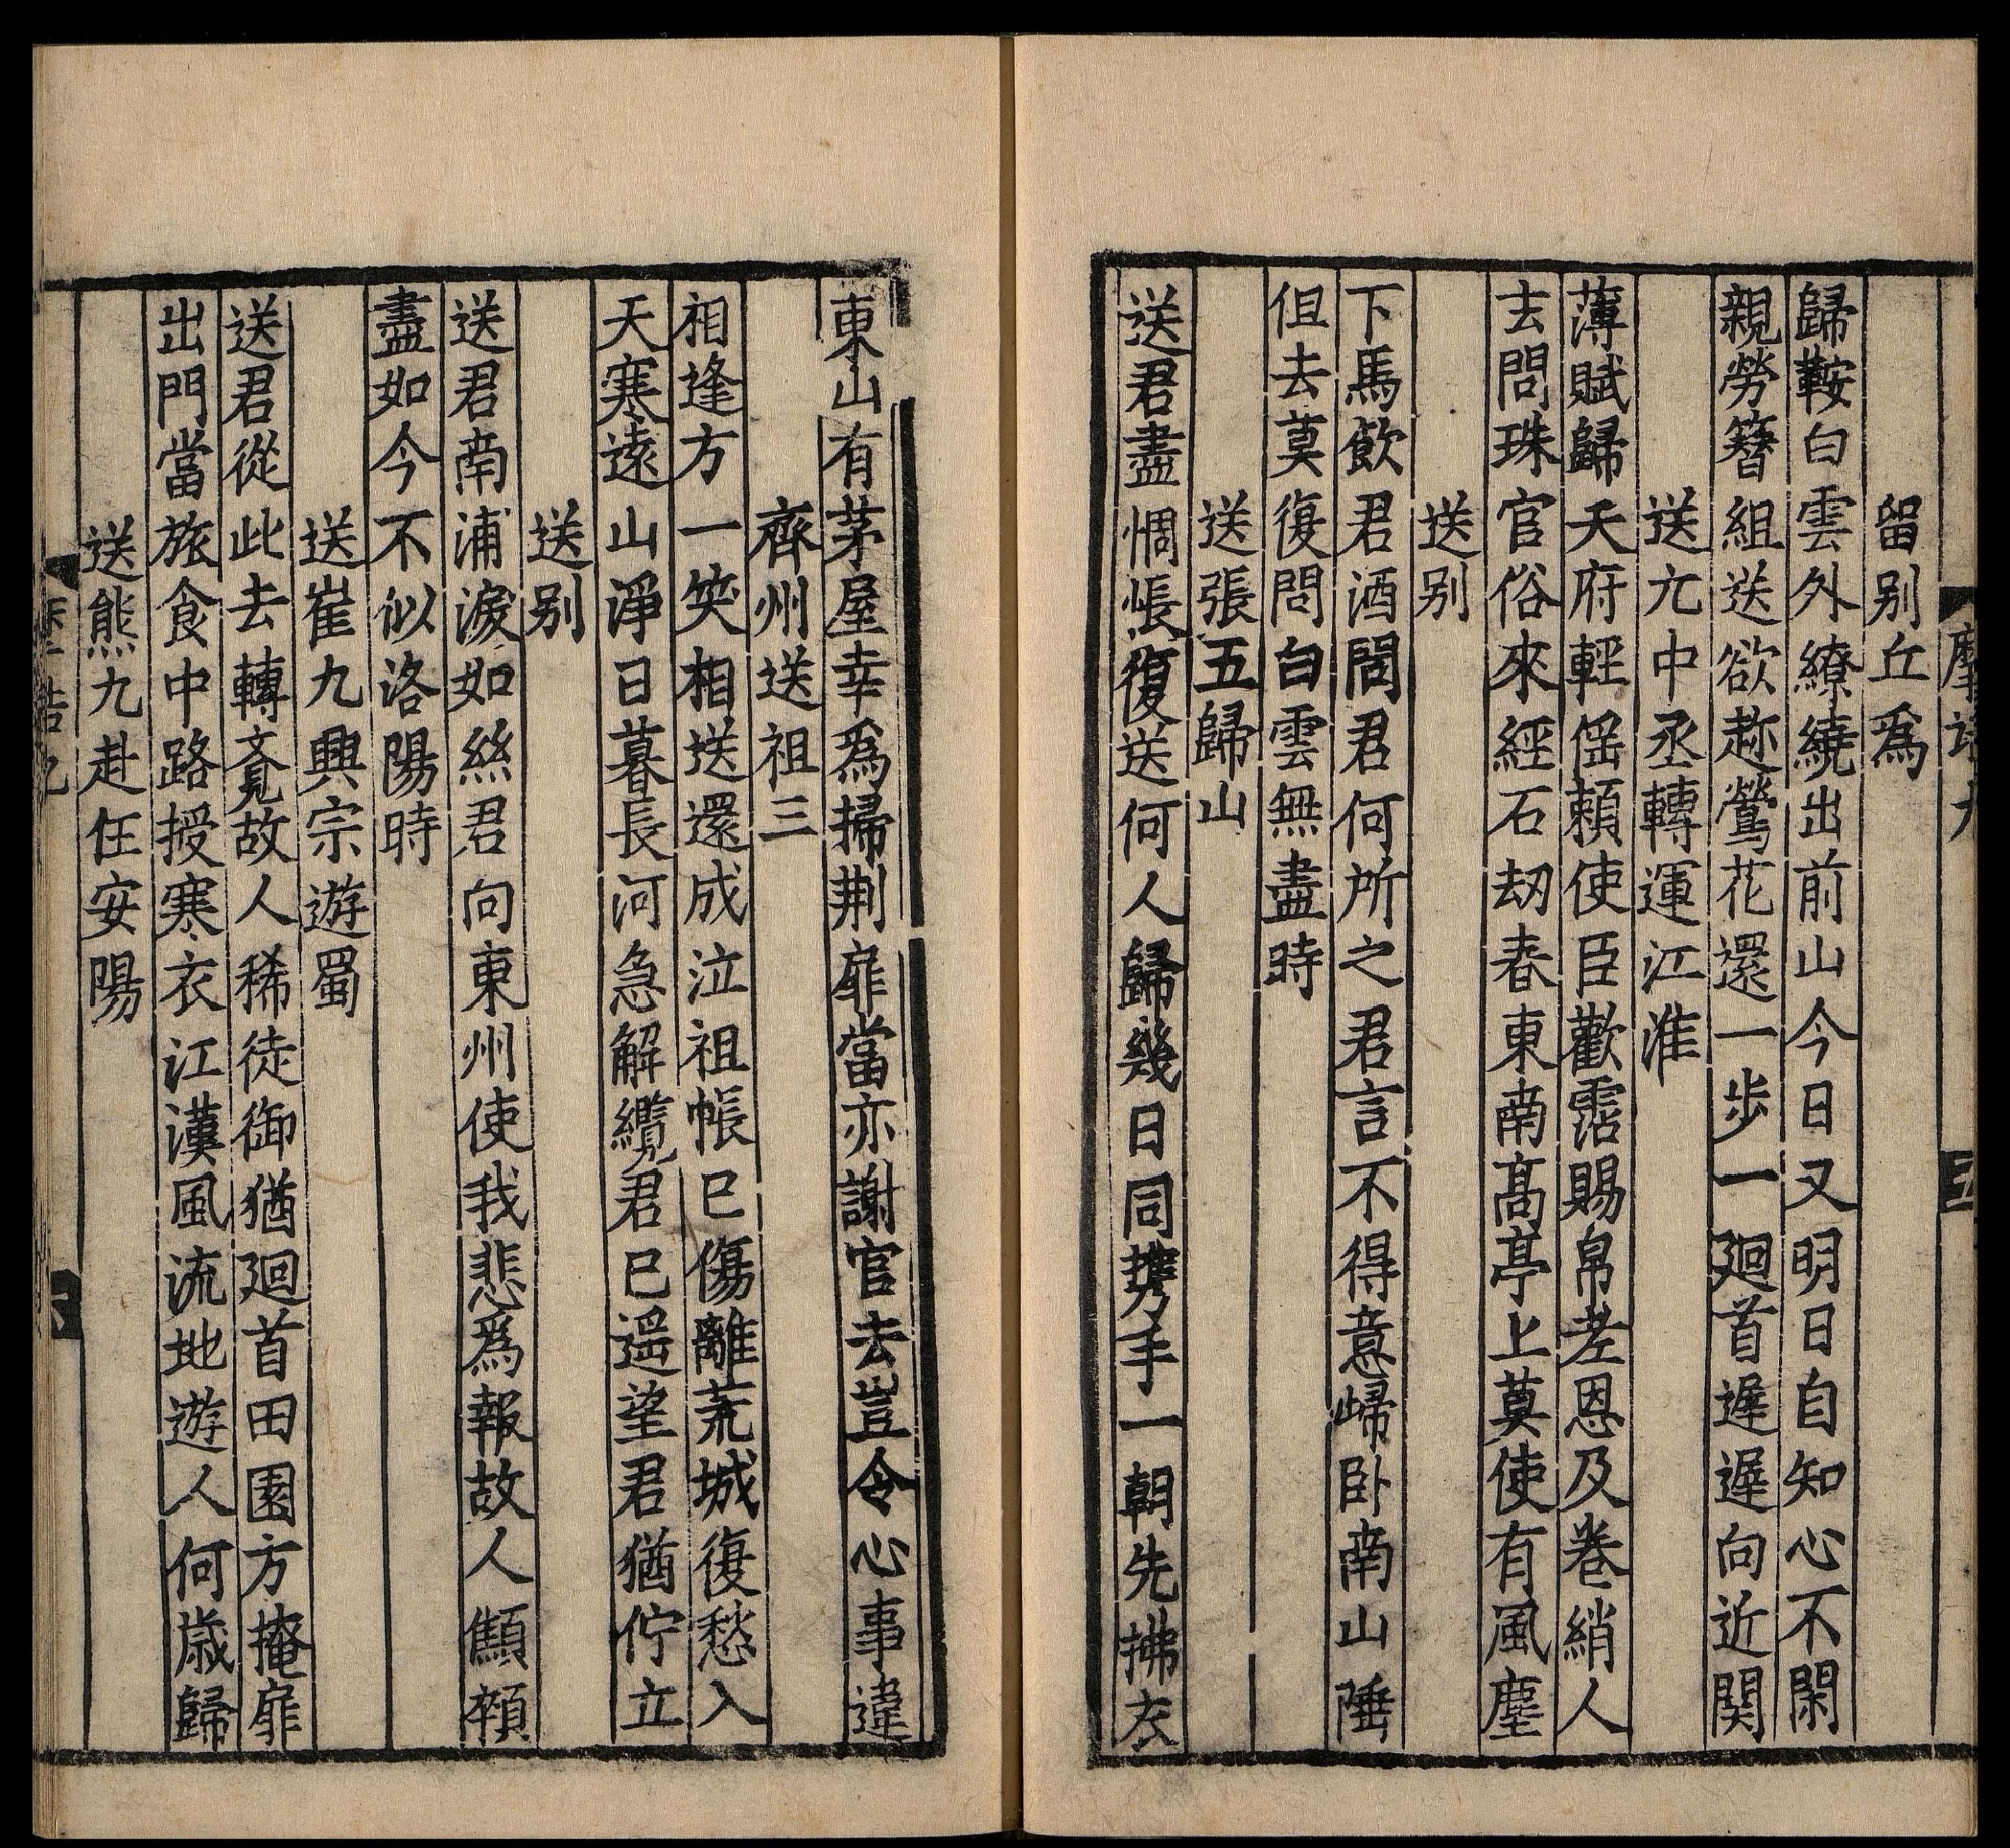 留別丘爲
歸鞍白雲外繚繞出前山今日又明日自知心不閑
親勞簪組送欲趂鶯花還一步一廻首遲遲向近関
送亢中丞轉運江淮
薄賦歸天府輕傜頼使臣歡霑賜帛老恩及卷綃人
去問珠官俗來經石刼春東南髙亭上莫使有風塵
送别
下馬飲君酒問君何所之君言不得意歸卧南山陲
但去莫復問白雲無盡時
送張五歸山
送君盡惆悵復送何人歸幾日同携手一朝先拂衣
東山有茅屋幸爲掃荆扉當亦謝官去豈令心事違
齊州送祖三
相逢方一笑相送還成泣祖帳已傷離荒城復愁入
天寒遠山淨日暮長河急解纜君已遥望君猶佇立
送别
送君南浦淚如絲君向東州使我悲爲報故人顦顇
盡如今不似洛陽時
送崔九興宗遊蜀
送君從此去轉覔故人稀徒御猶廻首田園方掩扉
出門當旅食中路授寒衣江漢風流地遊人何歲歸
送熊九赴任安陽